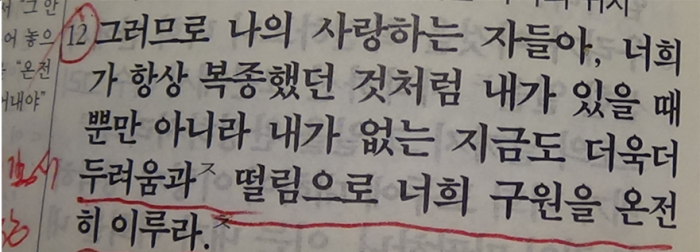 12 그러므로 나의 사랑하는 자들아, 너희
가 항상 복종했던 것처럼 내가 있을 때
뿐만 아니라 내가 없는 지금도 더욱더
두려움과 떨림으로 너희 구원을 온전
히 이루라.
어 놓으
"온전
내야"